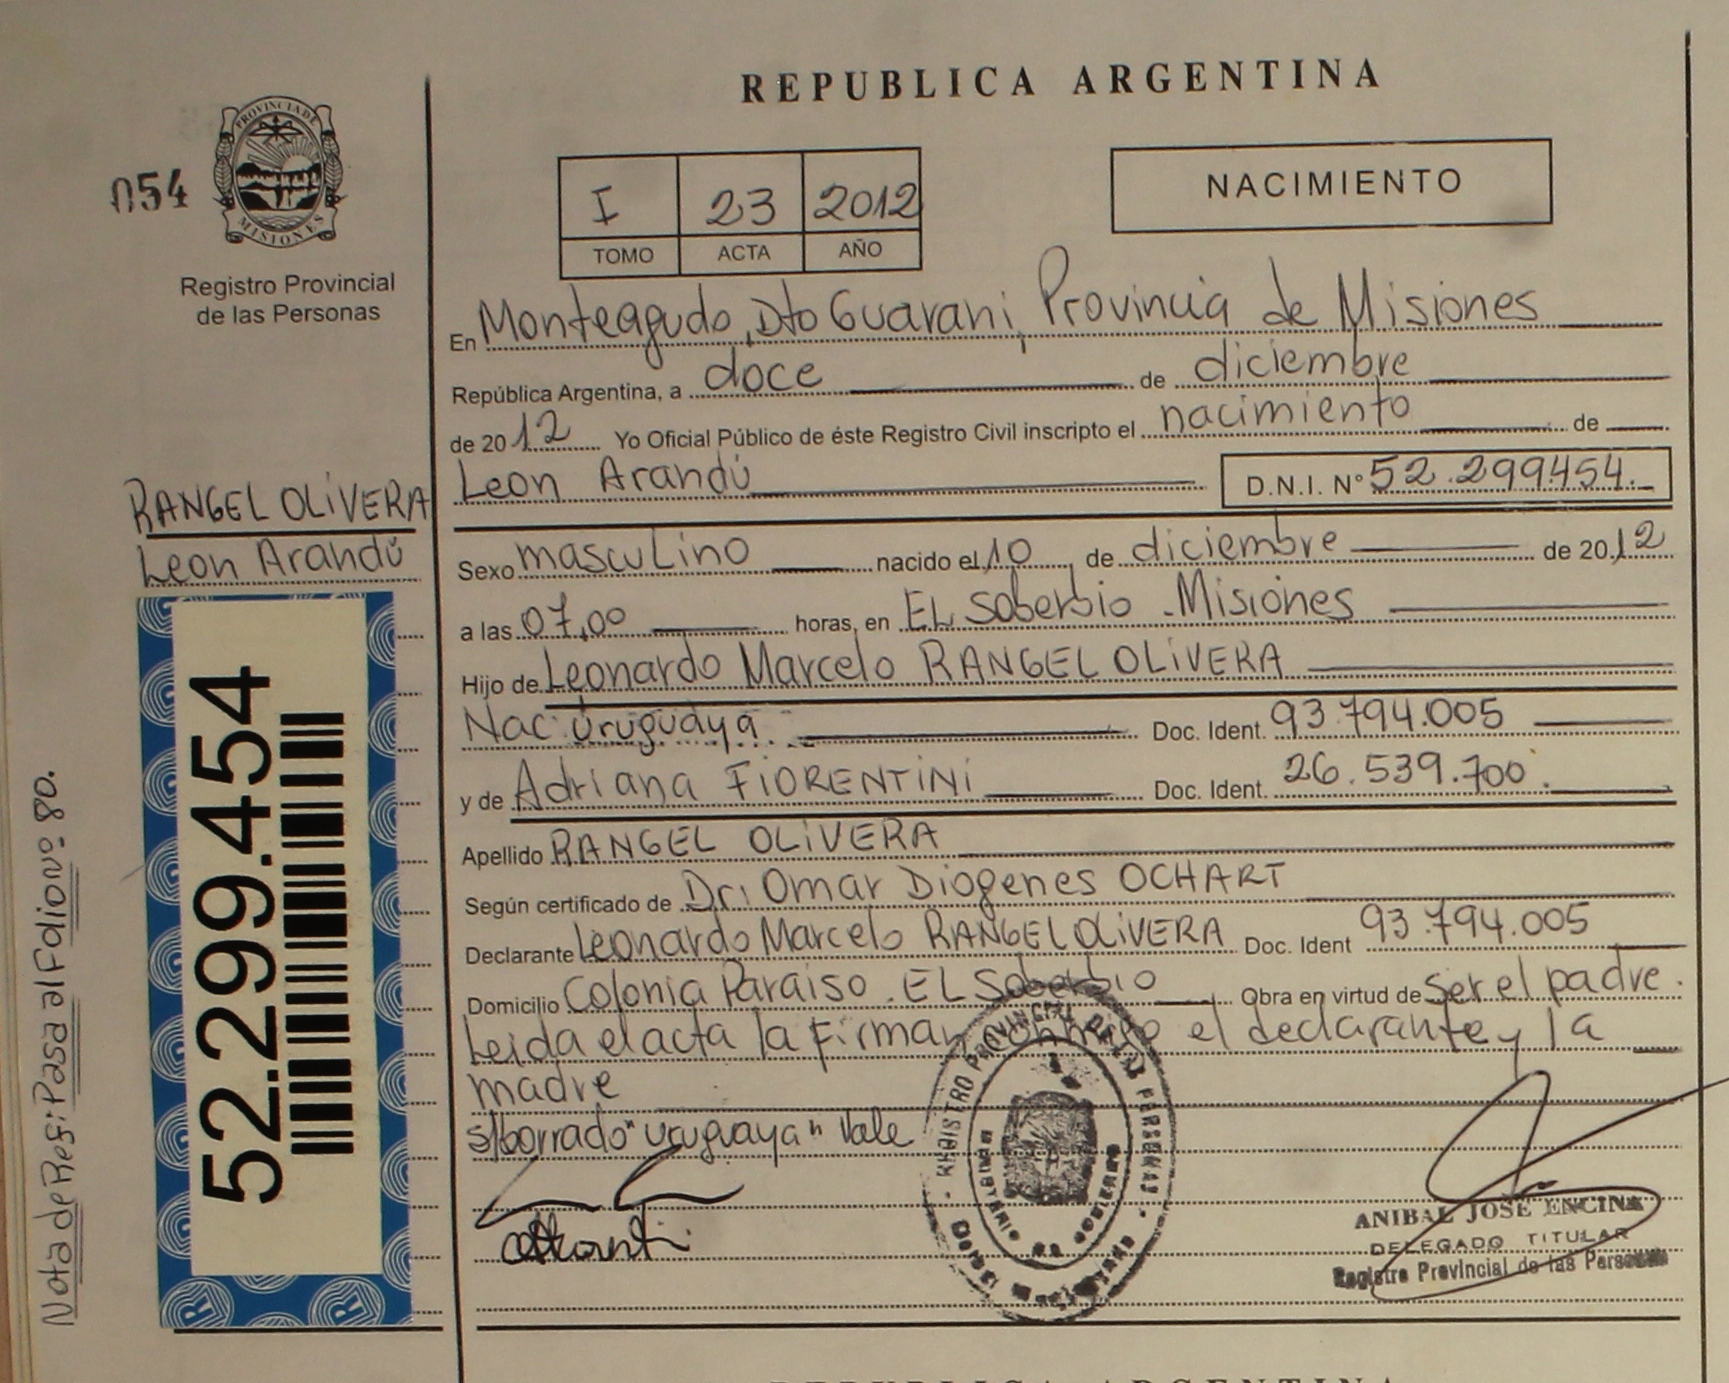 REPUBLICA ARGENTINA
PROVINCIA DE
MISIONES
054
Registro Provincial
de las Personas
I 23 2012
TOMO ACTA AÑO
NACIMIENTO
En Monteagudo, Dto Guaraní, Provincia de Misiones
República Argentina, a doce de diciembre
de 2012 Yo Oficial Público de éste Registro Civil inscripto el nacimiento de
Leon Arandú D.N.I. Nº 52.299.454.
RANGEL OLIVERA
Leon Arandú
Sexo masculino nacido el 10 de diciembre de 2012
a las 07,00 horas, en EL Soberbio - Misiones
Hijo de Leonardo Marcelo RANGEL OLIVERA
Nac: Uruguaya. Doc. Ident. 93.794.005
y de Adriana FIORENTINI Doc. Ident. 26.539.700.
Apellido RANGEL OLIVERA
Según certificado de Dr: Omar Diogenes OCHART
Declarante Leonardo Marcelo RANGEL OLIVERA Doc. Ident 93.794.005
Domicilio Colonia Paraiso. EL Soberbio Obra en virtud de ser el padre.
Leida el acta la firman conmigo el declarante y la
madre
s/borrado "uruguaya" Vale
52.299.454
Nota de Ref: Pasa al Folio nº 80.
REGISTRO PROVINCIAL DE LAS PERSONAS
MINISTERIO DE GOBIERNO
ANIBAL JOSE ENCINA
DELEGADO TITULAR
Registro Provincial de las Personas
REPUBLICA ARGENTINA